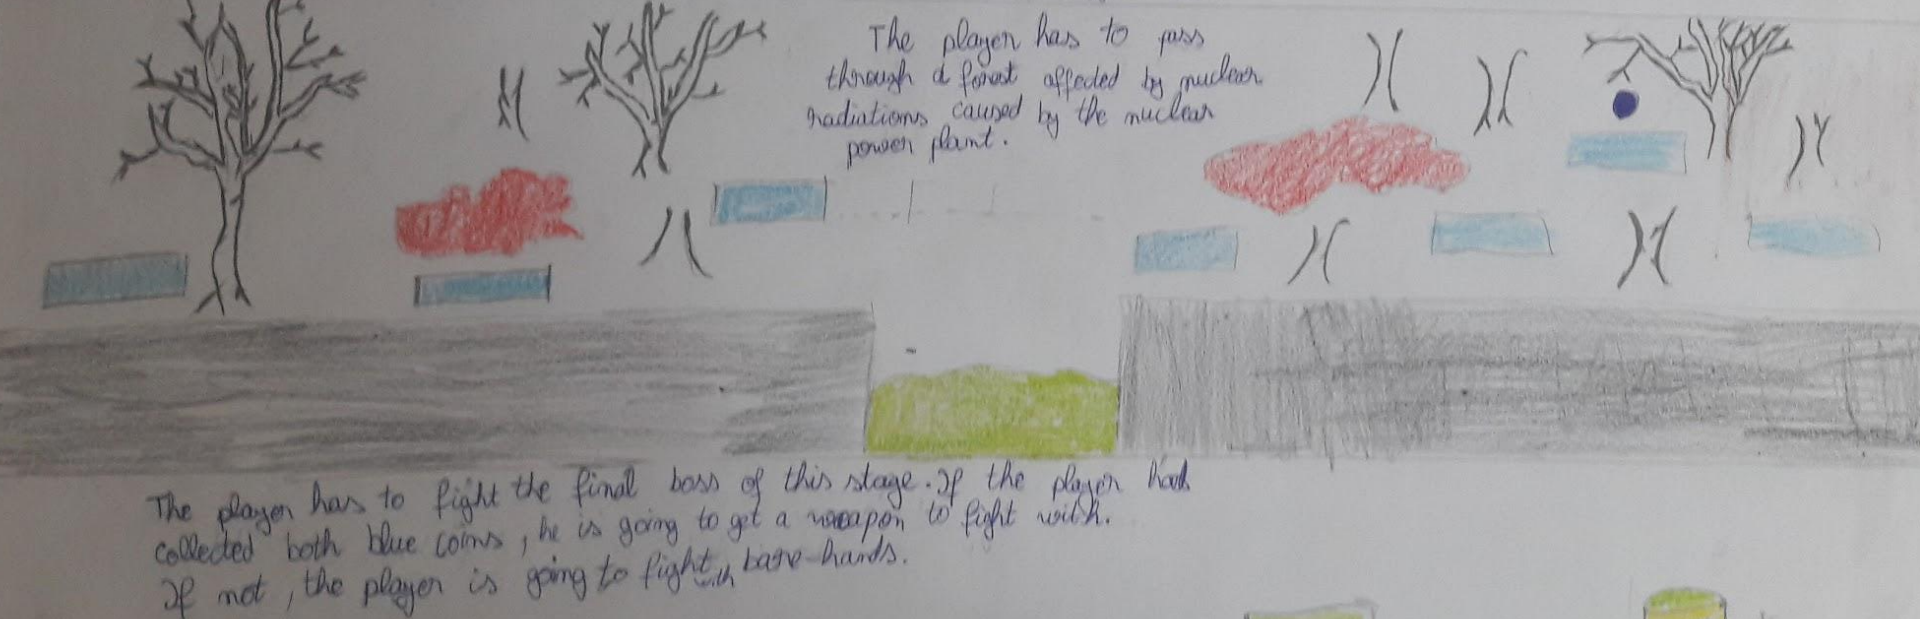 The player has to pass
through a forest affected by nuclear
radiations caused by the nuclear
power plant.
The player has to fight the final boss of this stage. If the player had
collected both blue coins, he is going to get a weapon to fight with.
If not, the player is going to fight with bare-hands.